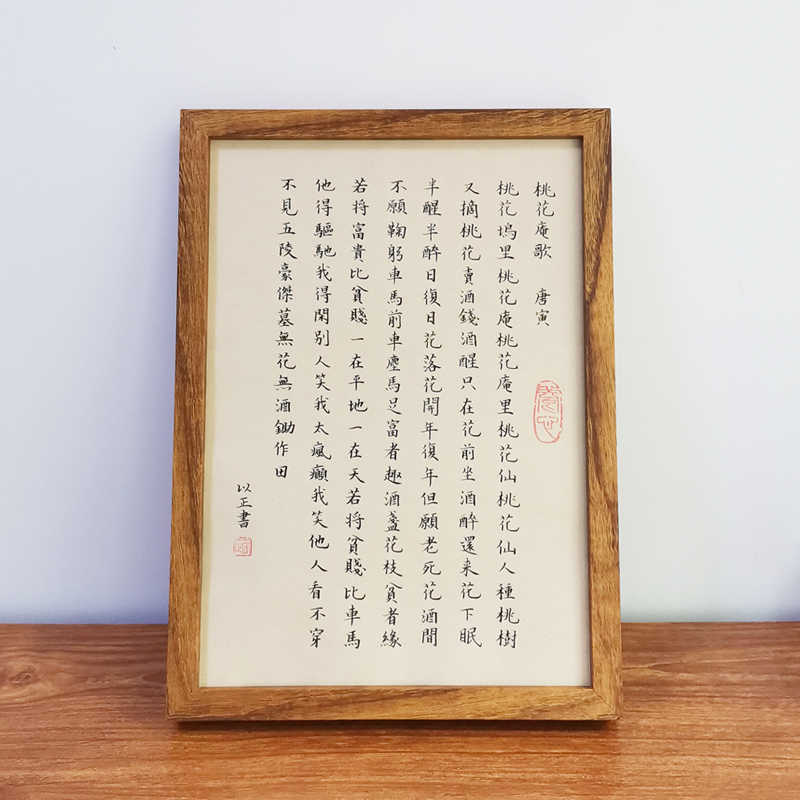 桃花庵歌 唐寅
桃花塢里桃花庵桃花庵里桃花仙桃花仙人種桃樹
又摘桃花賣酒錢酒醒只在花前坐酒醉還来花下眠
半醒半醉日復日花落花開年復年但願老死花酒間
不願鞠躬車馬前車塵馬足富者趣酒盞花枝貧者緣
若将富貴比貧賤一在平地一在天若将貧賤比車馬
他得驅馳我得閑別人笑我太瘋癲我笑他人看不穿
不見五陵豪傑墓無花無酒鋤作田
以正書